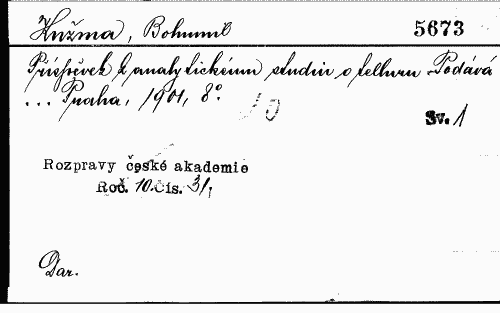 Kužma, Bohumil 5673
Příspěvek k analytickému studiu o telluru Podává
... Praha, 1901, 8°.
Sv. 1
Rozpravy české akademie
Roč. 10 Čís. 31,
Dar.